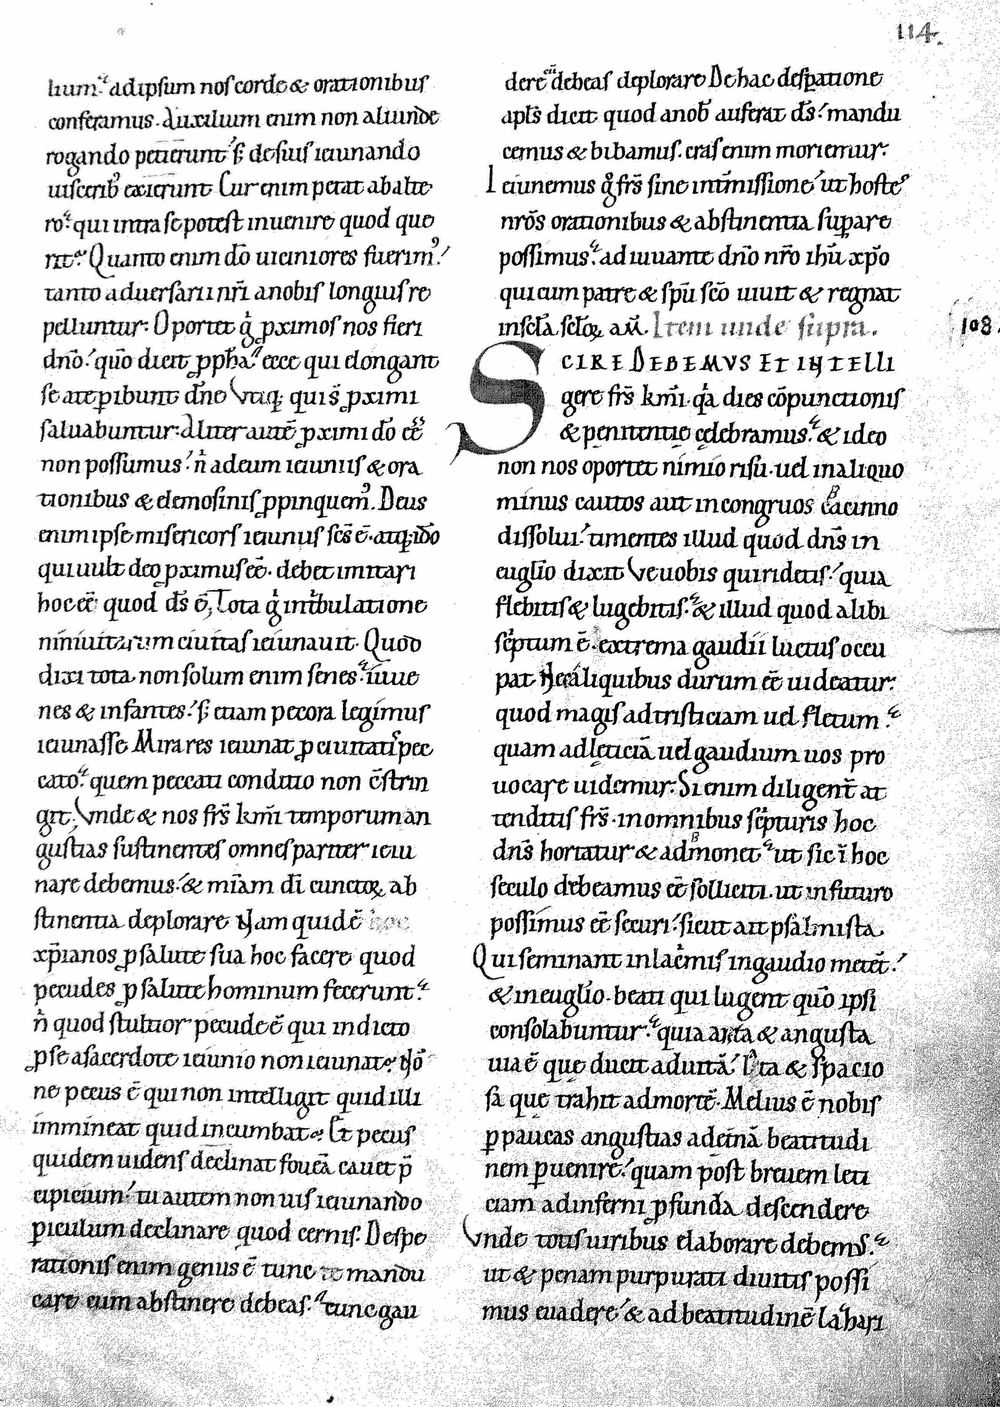 114.
lium. ad ipsum nos corde & orationibus
conferamus. Auxilium enim non aliunde
rogando petierunt s; de suis ieiunando
uiscerib; exierunt Cur enim petat ab alte
ro. qui intra se potest inuenire quod que
rit. Quanto enim do uiciniores fuerim'.
tanto aduersarii nr̄i a nobis longius re
pelluntur. Oportet g̊ ꝓximos nos fieri
dn̄o. quō dicit ꝓpħa. ecce qui elongant
se a te ꝑibunt dn̄e Vtiq; qui s̄ ꝓximi
saluabuntur. Aliter autē ꝓximi dō eē
non possumus. n̄ ad eum ieiuniis & ora
tionibus & elemosinis ꝓpinquem'. Deus
enim ipse misericors ieiunus scs̄ ē. atq; idō
qui uult deo ꝓximus eē. debet imitari
hoc eē quod d̄s ē, Tota g̊ in tribulatione
niniuitarum ciuitas ieiunauit. Quod
dixi tota non solum enim senes. iuue
nes & infantes. s; etiam pecora legimus
ieiunasse Mira res ieiunat ꝓ ciuitatis pec
cato. quem peccati conditio non c̄strin
git. Vnde & nos frs̄ km̄i temporum an
gustias sustinentes omnes pariter ieiu
nare debemus. & mīam dī cunctoꝝ ab
stinentia deplorare Nam quidē hoc
xp̄ianos ꝓ salute sua hoc facere quod
pecudes ꝓ salute hominum fecerunt.
n̄ quod stultior pecude ē qui indicto
ꝓ se a sacerdote ieiunio non ieiunat. Nō
ne pecus ē qui non intelligit quid illi
immineat quid incumbat. Et pecus
quidem uidens declinat fouēa cauet p̄
cipicium. tu autem non uis ieiunando
ꝑiculum declinare quod cernis. Despe
rationis enim genus ē tunc te mandu
care cum abstinere debeas. tunc gau
dere cū debeas deplorare De hac desꝑatione
apls̄ dicit quod a nob̄ auferat ds̄. mandu
cemus & bibamus. cras enim moriemur.
Ieiunemus g̊ frs̄ sine intm̄issione ut hoste's
nrōs orationibus & abstinentia suꝑare
possimus. adiuuante dn̄o nr̄o ihū xp̄o
qui cum patre & spū scō uiuit & regnat
in scl̄a scl̄oꝝ am̄. Item unde supra.
108.
SCIRE DEBEMVS ET INTELLI
gere frs̄ km̄i. q̇a dies cōpunctionis
& penitentie celebramus. & ideo
non nos oportet nimio risu. uel in aliquo
minus cautos aut in congruos cacinno
dissolui. timentes illud quod dn̄s in
euglīo dixit Ve uobis qui ridetis. quia
flebitis & lugebitis. & illud quod alibi
scriptum ē. extrema gaudii luctus occu
pat Nec aliquibus durum eē uideatur.
quod magis ad tristiciam uel fletum
quam ad leticiā uel gaudium uos pro
uocare uidemur. Si enim diligent̄ at
tenditis frs̄. in omnibus scripturis hoc
dn̄s hortatur & admonet ut sic ī hoc
seculo debeamus eē solliciti. ut in futuro
possimus eē securi. sicut ait psalmista
Qui seminant in lac̄mis in gaudio metet̄.
& in euglīo. beati qui lugent quō ipsi
consolabuntur. quia arta & angusta
uia ē que ducit ad uitā. lata & spacio
sa que trahit ad mortē. Melius ē nobis
ꝑ paucas angustias ad et̄nā beatitudi
nem ꝑuenire. quam post breuem leti
ciam ad inferni ꝓfunda descendere
Vnde totis uiribus elaborare debem'.
ut & penam purpurati diuitis possi
mus euadere. & ad beatitudinē lazari